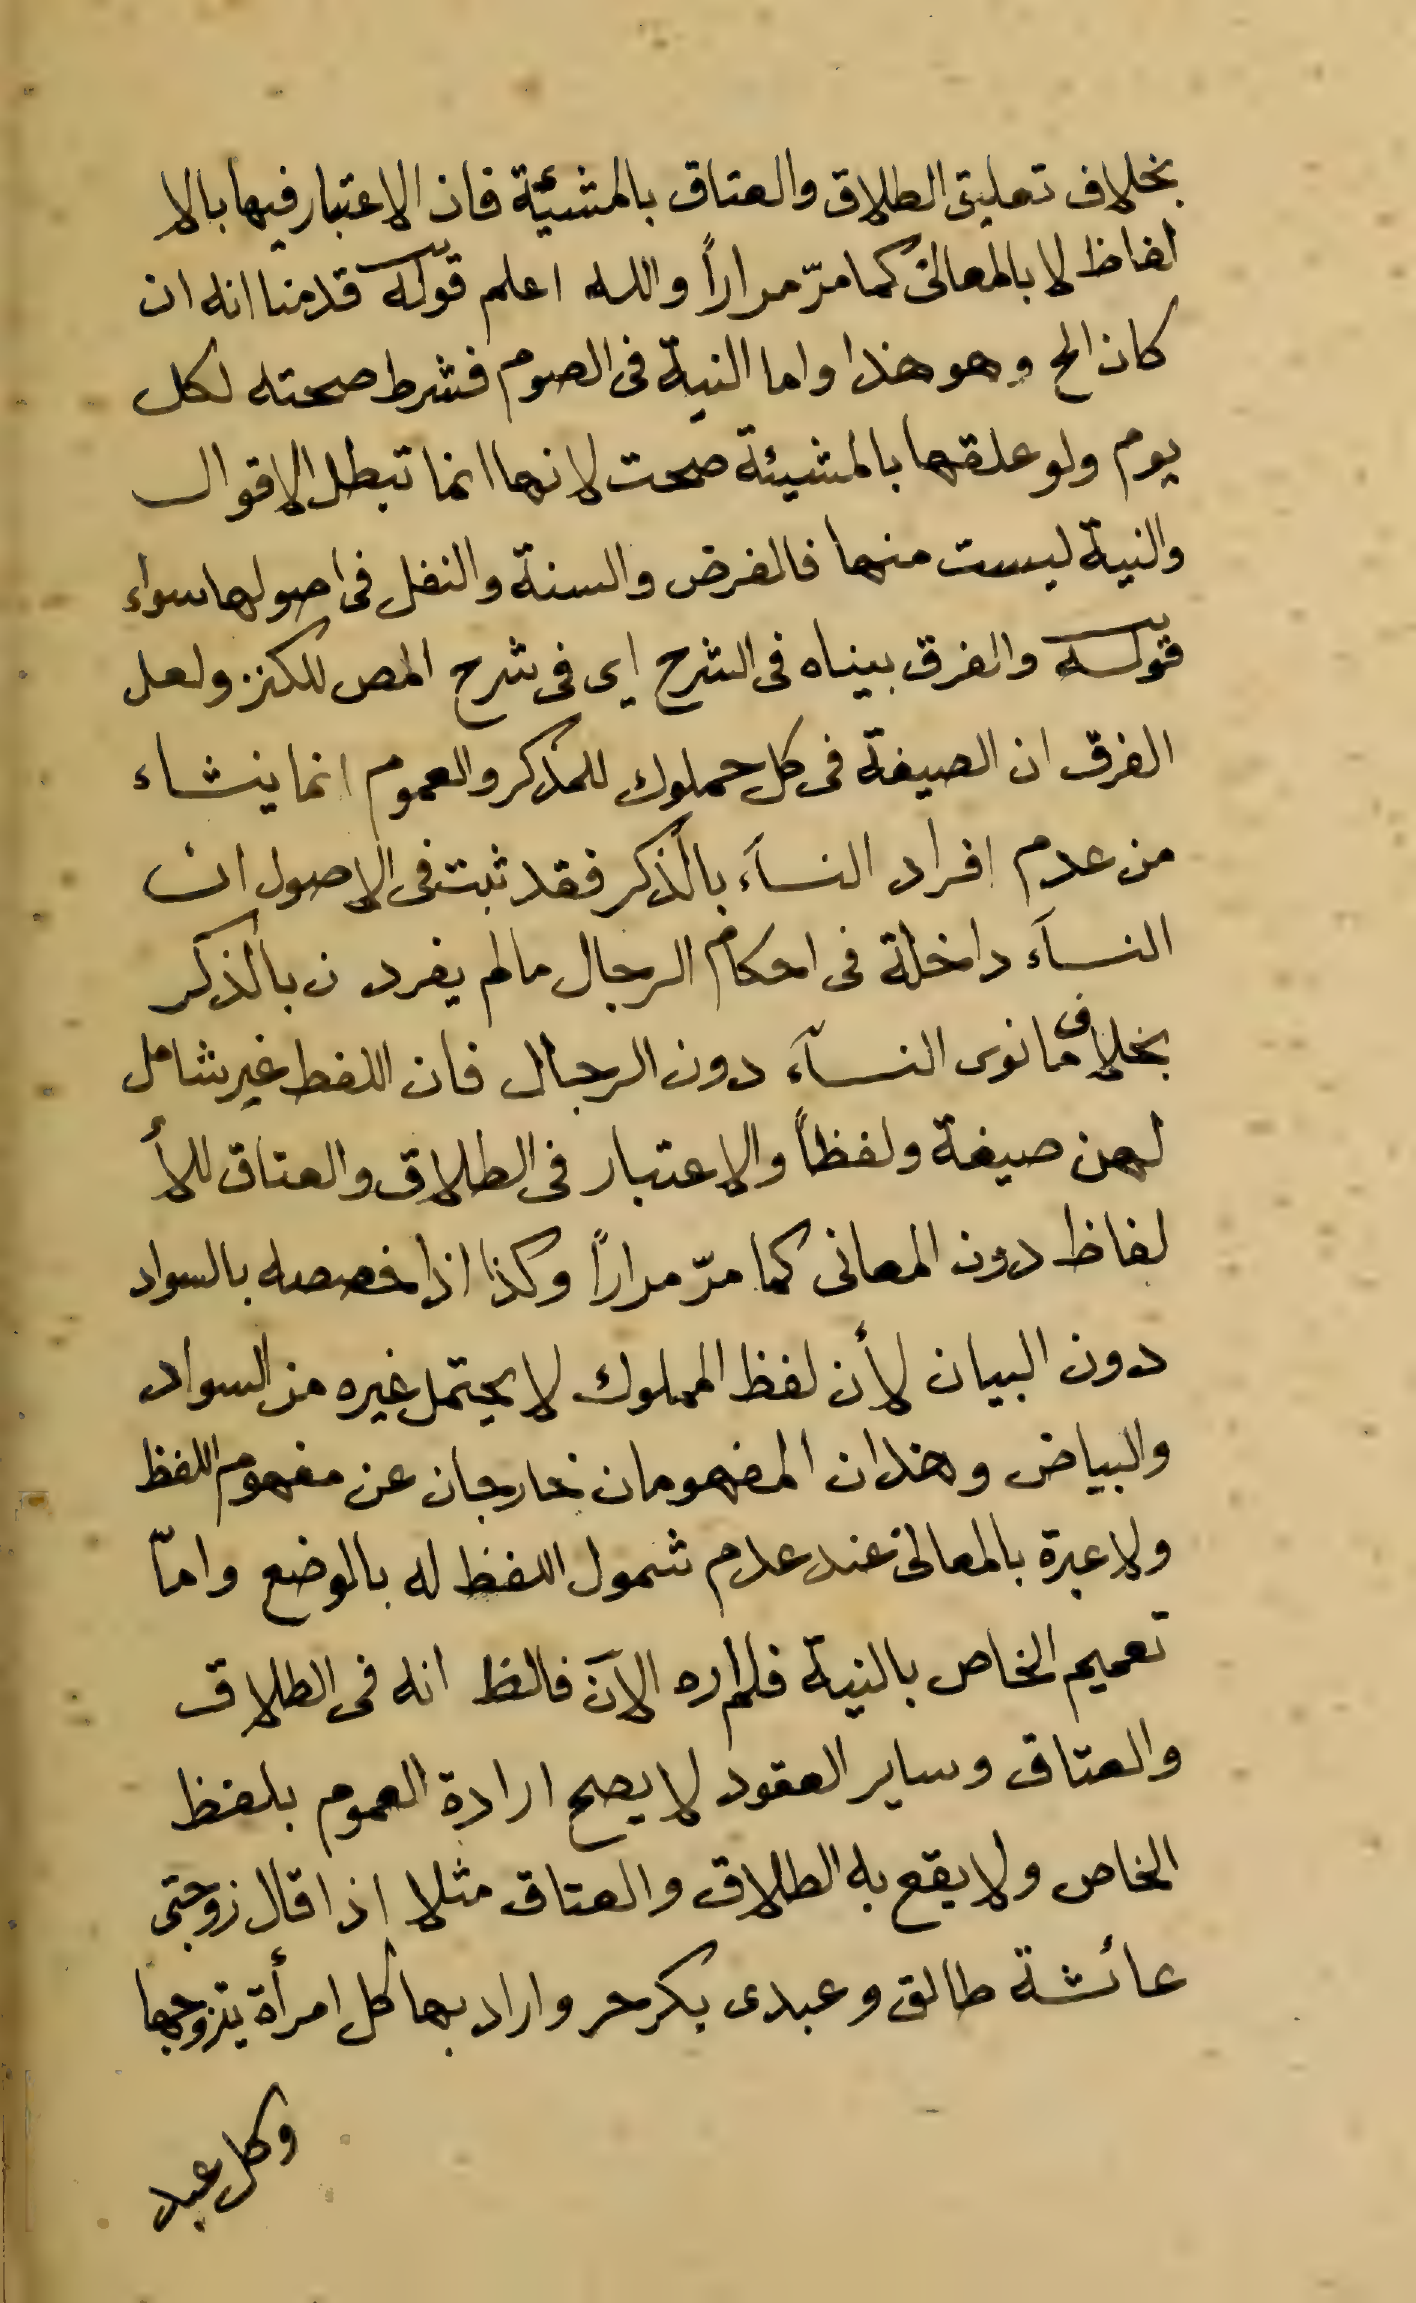 بخلاف تعليق الطلاق والعتاق بالمشيّة فان الاعتبار فيها بالا
لفاظ لا بالمعانى كما مرّ مراراً والله اعلم قوله قدمنا انه ان
كان الخ وهو هذا واما النية فى الصوم فشرط صحته لكل
يوم ولو علقها بالمشيئة صحت لانها انما تبطل الاقوال
والنية ليست منها فالفرض والسنة والنفل فى اصولها سواء
قوله والفرق بيناه فى الشرح اى فى شرح المص للكنز ولعل
الفرق ان الصيغة فى كل حملوك للمذكر والعموم انما ينشاء
من عدم افراد النسآء بالذكر فقد ثبت فى الاصول ان
النسآء داخلة فى احكام الرجال مالم يفردن بالذكر
بخلاف ما نوى النسآء دون الرجال فان اللفظ غير شامل
لهن صيغة ولفظاً والاعتبار فى الطلاق والعتاق للأ
لفاظ دون المعانى كما مرّ مراراً وكذا اذا خصصه بالسواد
دون البيان لأن لفظ المملوك لا يحتمل غيره من السواد
والبياض وهذان المفهومان خارجان عن مفهوم اللفظ
ولا عبرة بالمعانى عند عدم شمول اللفظ له بالوضع وامّا
تعميم الخاص بالنية فلم اره الآن فالظ انه فى الطلاق
والعتاق وساير العقود لا يصح ارادة العموم بلفظ
الخاص ولا يقع به الطلاق والعتاق مثلا اذا قال زوجتى
عائشة طالق وعبدى بكر حر واراد بها كل امرأة يتزوجها
وكل عبد